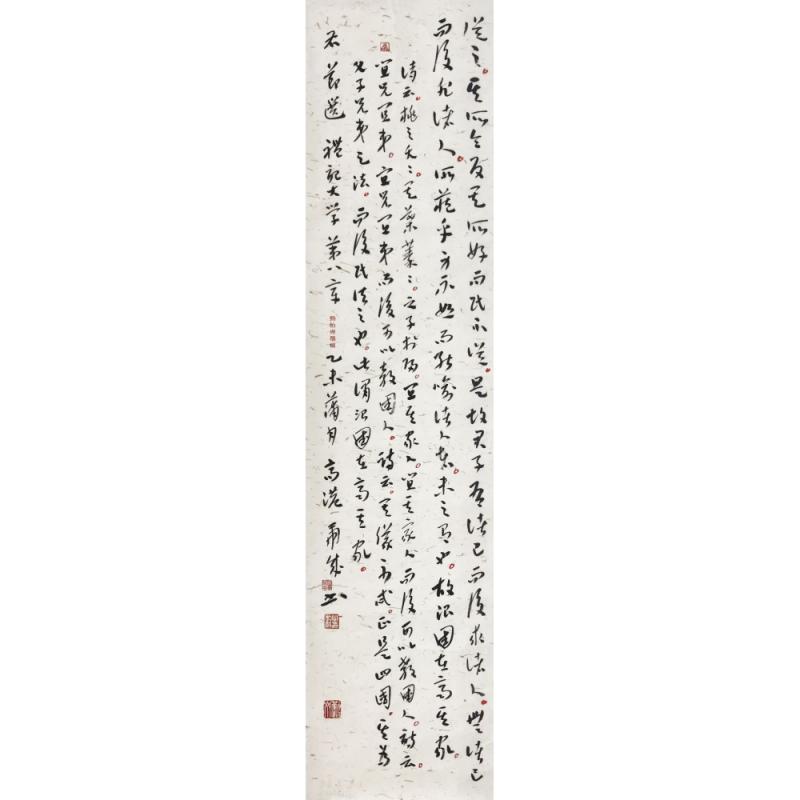 從之。其所令反其所好。而民不從。是故君子有諸己而後求諸人。無諸己
而後非諸人。所藏乎身不恕。而能喻諸人者。未之有也。故治國在齊其家。
詩云。桃之夭夭。其葉蓁蓁。之子于歸。宜其家人。宜其家人。而後可以教國人。詩云。
宜兄宜弟。宜兄宜弟。而後可以教國人。詩云。其儀不忒。正是四國。其為
父子兄弟足法。而後民法之也。此謂治國在齊其家。
右節選 禮記大學第八章 乙未蒲月 高港 書